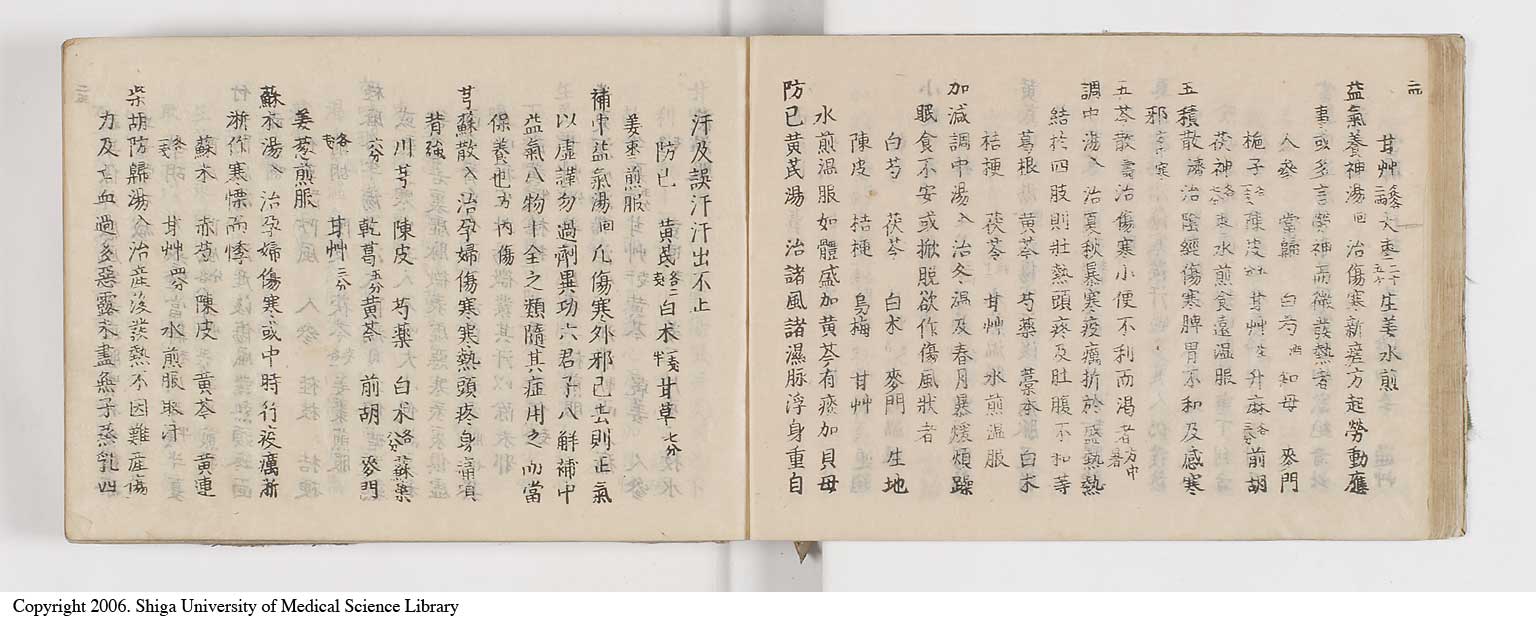 甘艸 大棗 生姜水煎
益氣養神湯 治傷寒新瘥方起勞動應
事或多言勞神而微發熱者
人參 當歸 白芍 知母 麥門
梔子 陳皮 甘艸 升麻 前胡
茯神 棗水煎食遠温服
五積散 治陰經傷寒脾胃不和及感寒
邪
五苓散 治傷寒小便不利而渴者
調中湯 治夏秋暴寒疫癘折於盛熱熱
結於四肢則壮熱頭疼及肚腹不和等
葛根 黄芩 芍薬 藁本 白朮
桔梗 茯苓 甘艸 水煎温服
加減調中湯 治冬温及春月暴煖煩躁
眠食不安或撤脱欲作傷風狀者
白芍 茯苓 白朮 麥門 生地
陳皮 桔梗 烏梅 甘艸
水煎温服如體盛加黄芩有痰加貝母
防已黄芪湯 治諸風諸濕脉浮身重自
汗及誤汗汗出不止
防已 黄芪 白朮 甘草 七分
姜棗煎服
補中益氣湯 凡傷寒外邪已去則正氣
以虚謹勿過劑異功六君子八解補中
益氣八物十全之類隨其症用之而當
保養也 内傷
芎蘇散 治孕婦傷寒寒熱頭疼身痛項
背強
川芎 陳皮 芍薬 白朮 蘇葉
六分 乾葛 五分 黄芩 前胡 麥門
甘艸 三分
姜葱煎服
蘇木湯 治孕婦傷寒或中時行疫癘漸
淅作寒慄而悸
蘇木 赤芍 陳皮 黄芩 黄連
甘艸 水煎服取汗
柴胡防歸湯 治産後發熱不因難産傷
力及去血過多惡露未盡無子蒸乳四
Copyright 2006. Shiga University of Medical Science Library